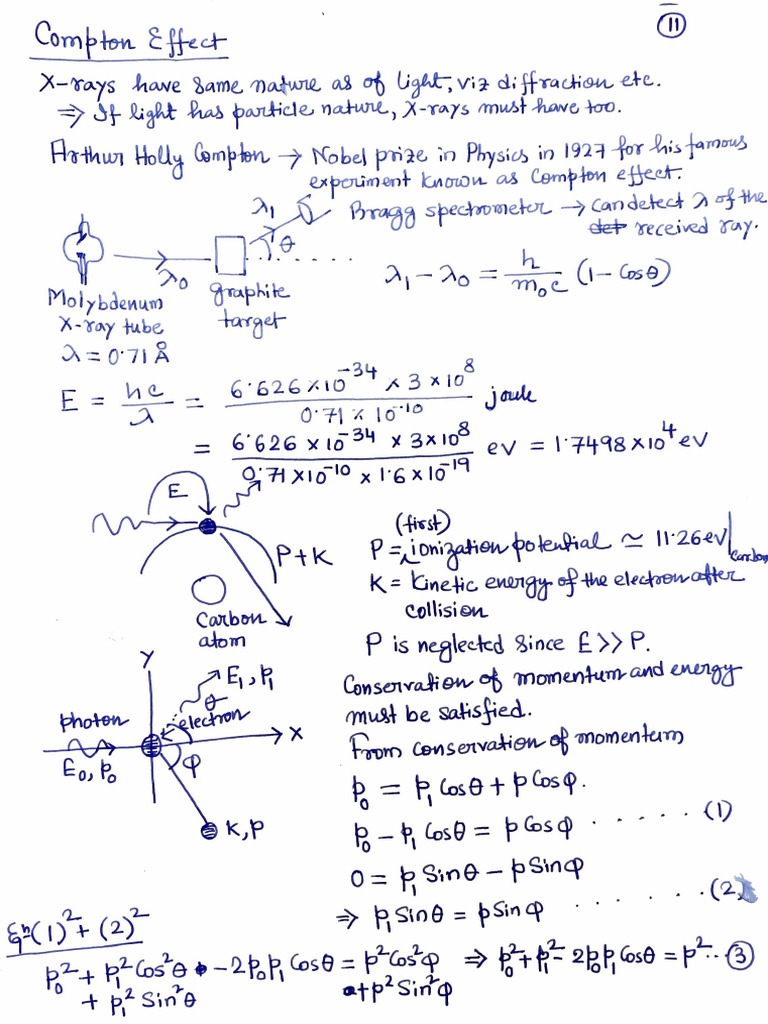 11
Compton Effect
X-rays have same nature as of light, viz diffraction etc.
⇒ If light has particle nature, X-rays must have too.
Arthur Holly Compton → Nobel prize in Physics in 1927 for his famous
experiment known as Compton effect.
λ₁ Bragg spectrometer → can detect λ of the
det received ray.
θ
λ₀
λ₁ − λ₀ = h/m₀c (1 − Cosθ)
Molybdenum
X-ray tube
λ = 0.71 Å
graphite
target
E = hc/λ = 6.626 × 10⁻³⁴ × 3 × 10⁸ / 0.71 × 10⁻¹⁰ joule
= 6.626 × 10⁻³⁴ × 3 × 10⁸ / 0.71 × 10⁻¹⁰ × 1.6 × 10⁻¹⁹ ev = 1.7498 × 10⁴ ev
E
P + K
Carbon
atom
(first)
P = ionization potential ≃ 11.26 ev|Carbon
K = Kinetic energy of the electron after
collision
P is neglected since E >> P.
Y
E₁, p₁
θ
electron
photon
X
E₀, p₀
φ
K, p
Conservation of momentum and energy
must be satisfied.
From conservation of momentum
p₀ = p₁ Cosθ + p Cosφ.
p₀ − p₁ Cosθ = p Cosφ ...... (1)
0 = p₁ Sinθ − p Sinφ
⇒ p₁ Sinθ = p Sinφ ....... (2)
Eqⁿ (1)² + (2)²
p₀² + p₁² Cos²θ − 2p₀p₁ Cosθ = p² Cos²φ ⇒ p₀² + p₁² − 2p₀p₁ Cosθ = p² .. ③
+ p₁² Sin²θ + p² Sin²φ